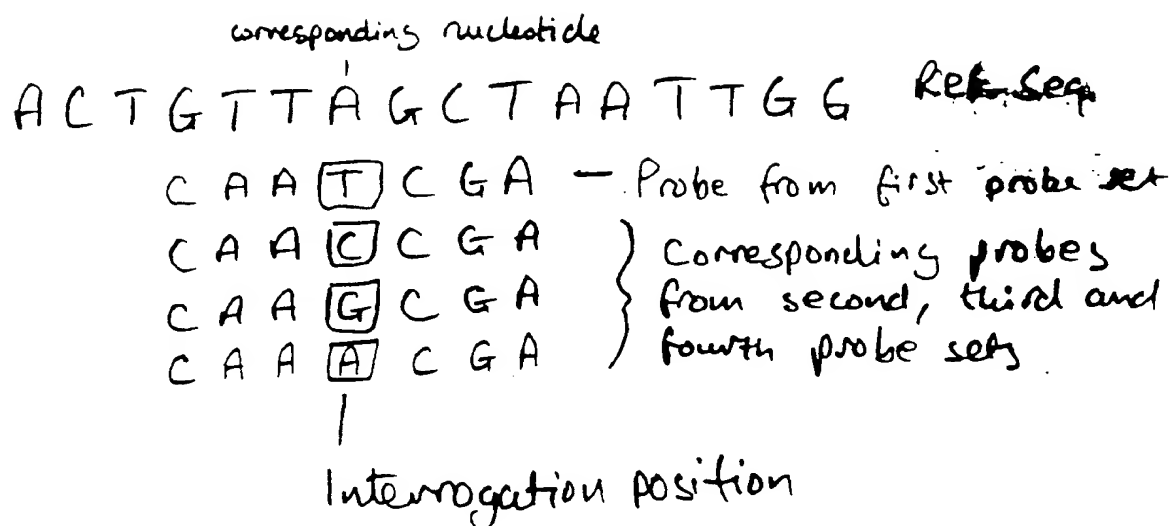 corresponding nucleotide
A C T G T T A G C T A A T T G G Ref. Seq.
C A A T C G A - Probe from first probe set
C A A C C G A } Corresponding probes
C A A G C G A from second, third and
C A A A C G A fourth probe sets.
Interrogation position